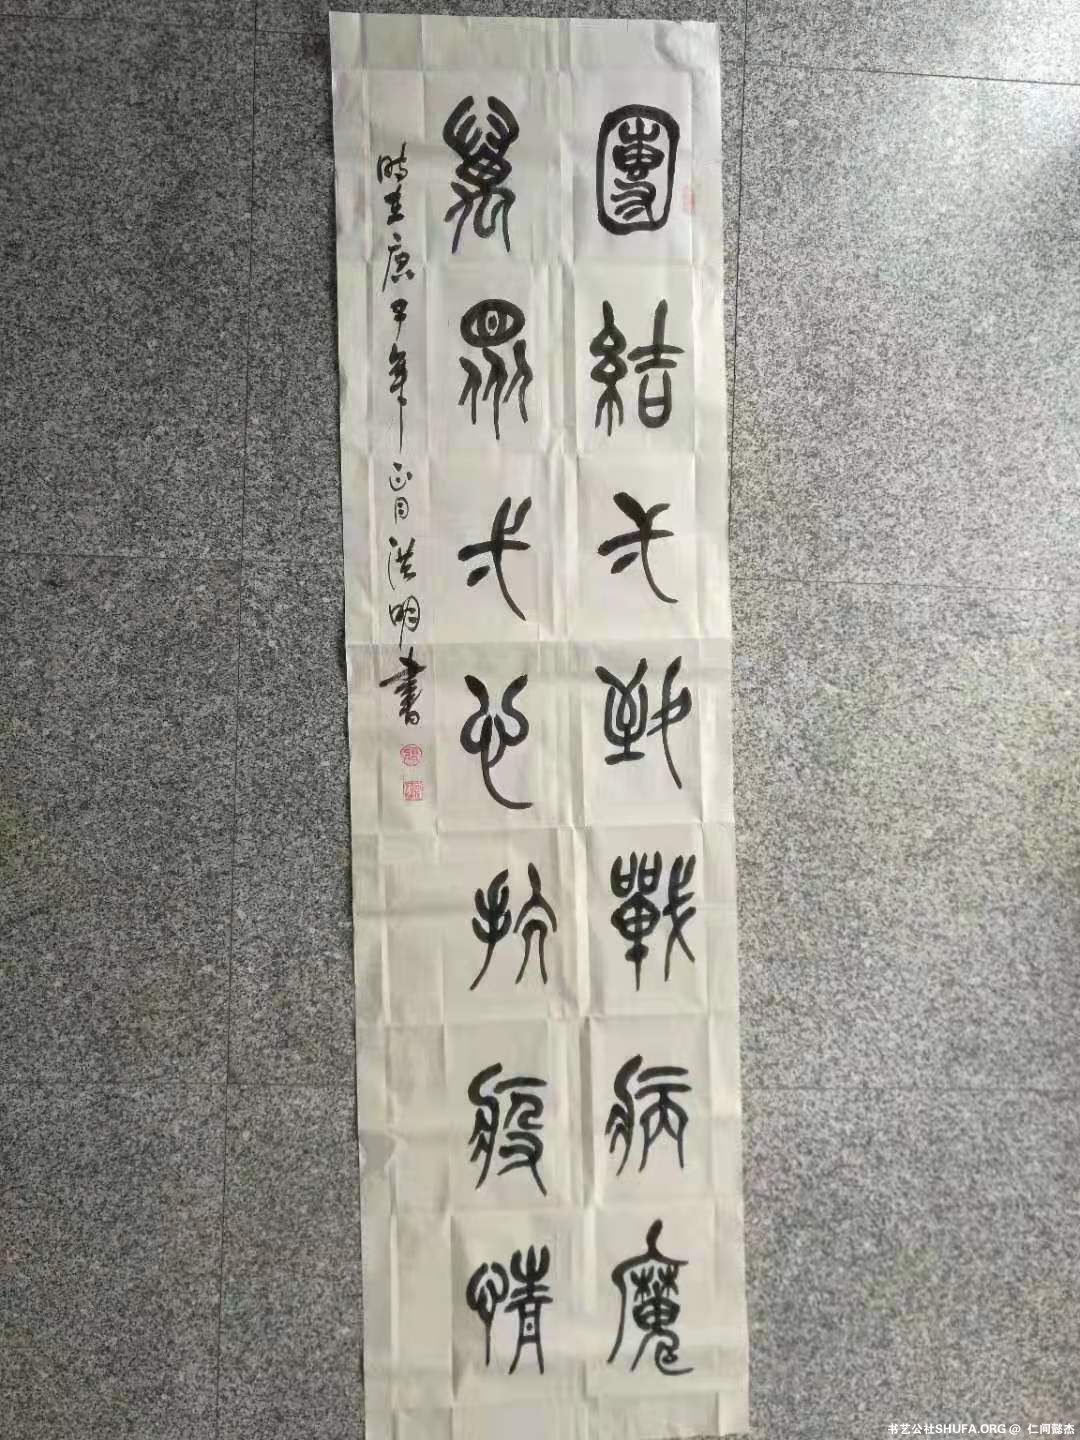 團結弌致戰病魔
萬眾弌心抗疫情
時在庚子年正月洪明書
书艺公社SHUFA.ORG @ 仁间懿杰